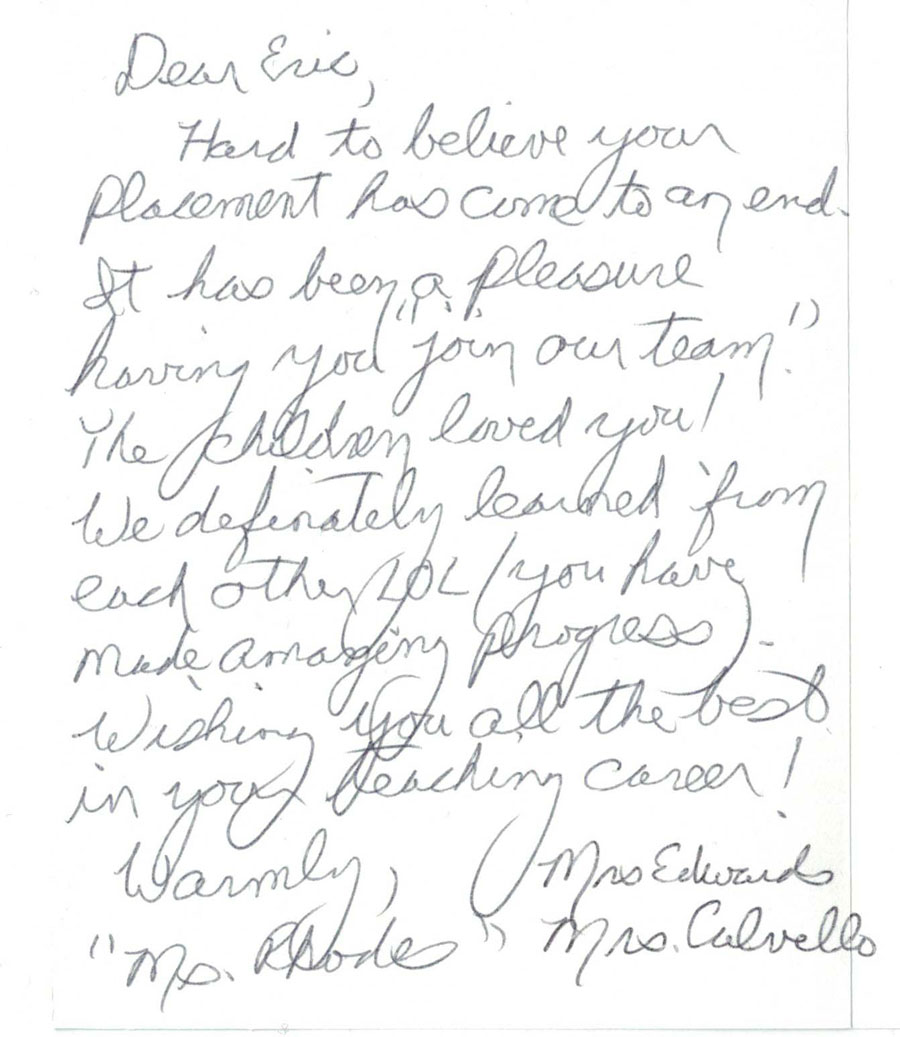 Dear Eric,
Hard to believe your
placement has come to an end.
It has been a pleasure
having you "join our team".
The children loved you!
We definately learned from
each other LOL (you have
made amazing progress).
Wishing you all the best
in your teaching career!
Warmly, Mrs Edwards
"Ms. Rhodes" Mrs. Calvello